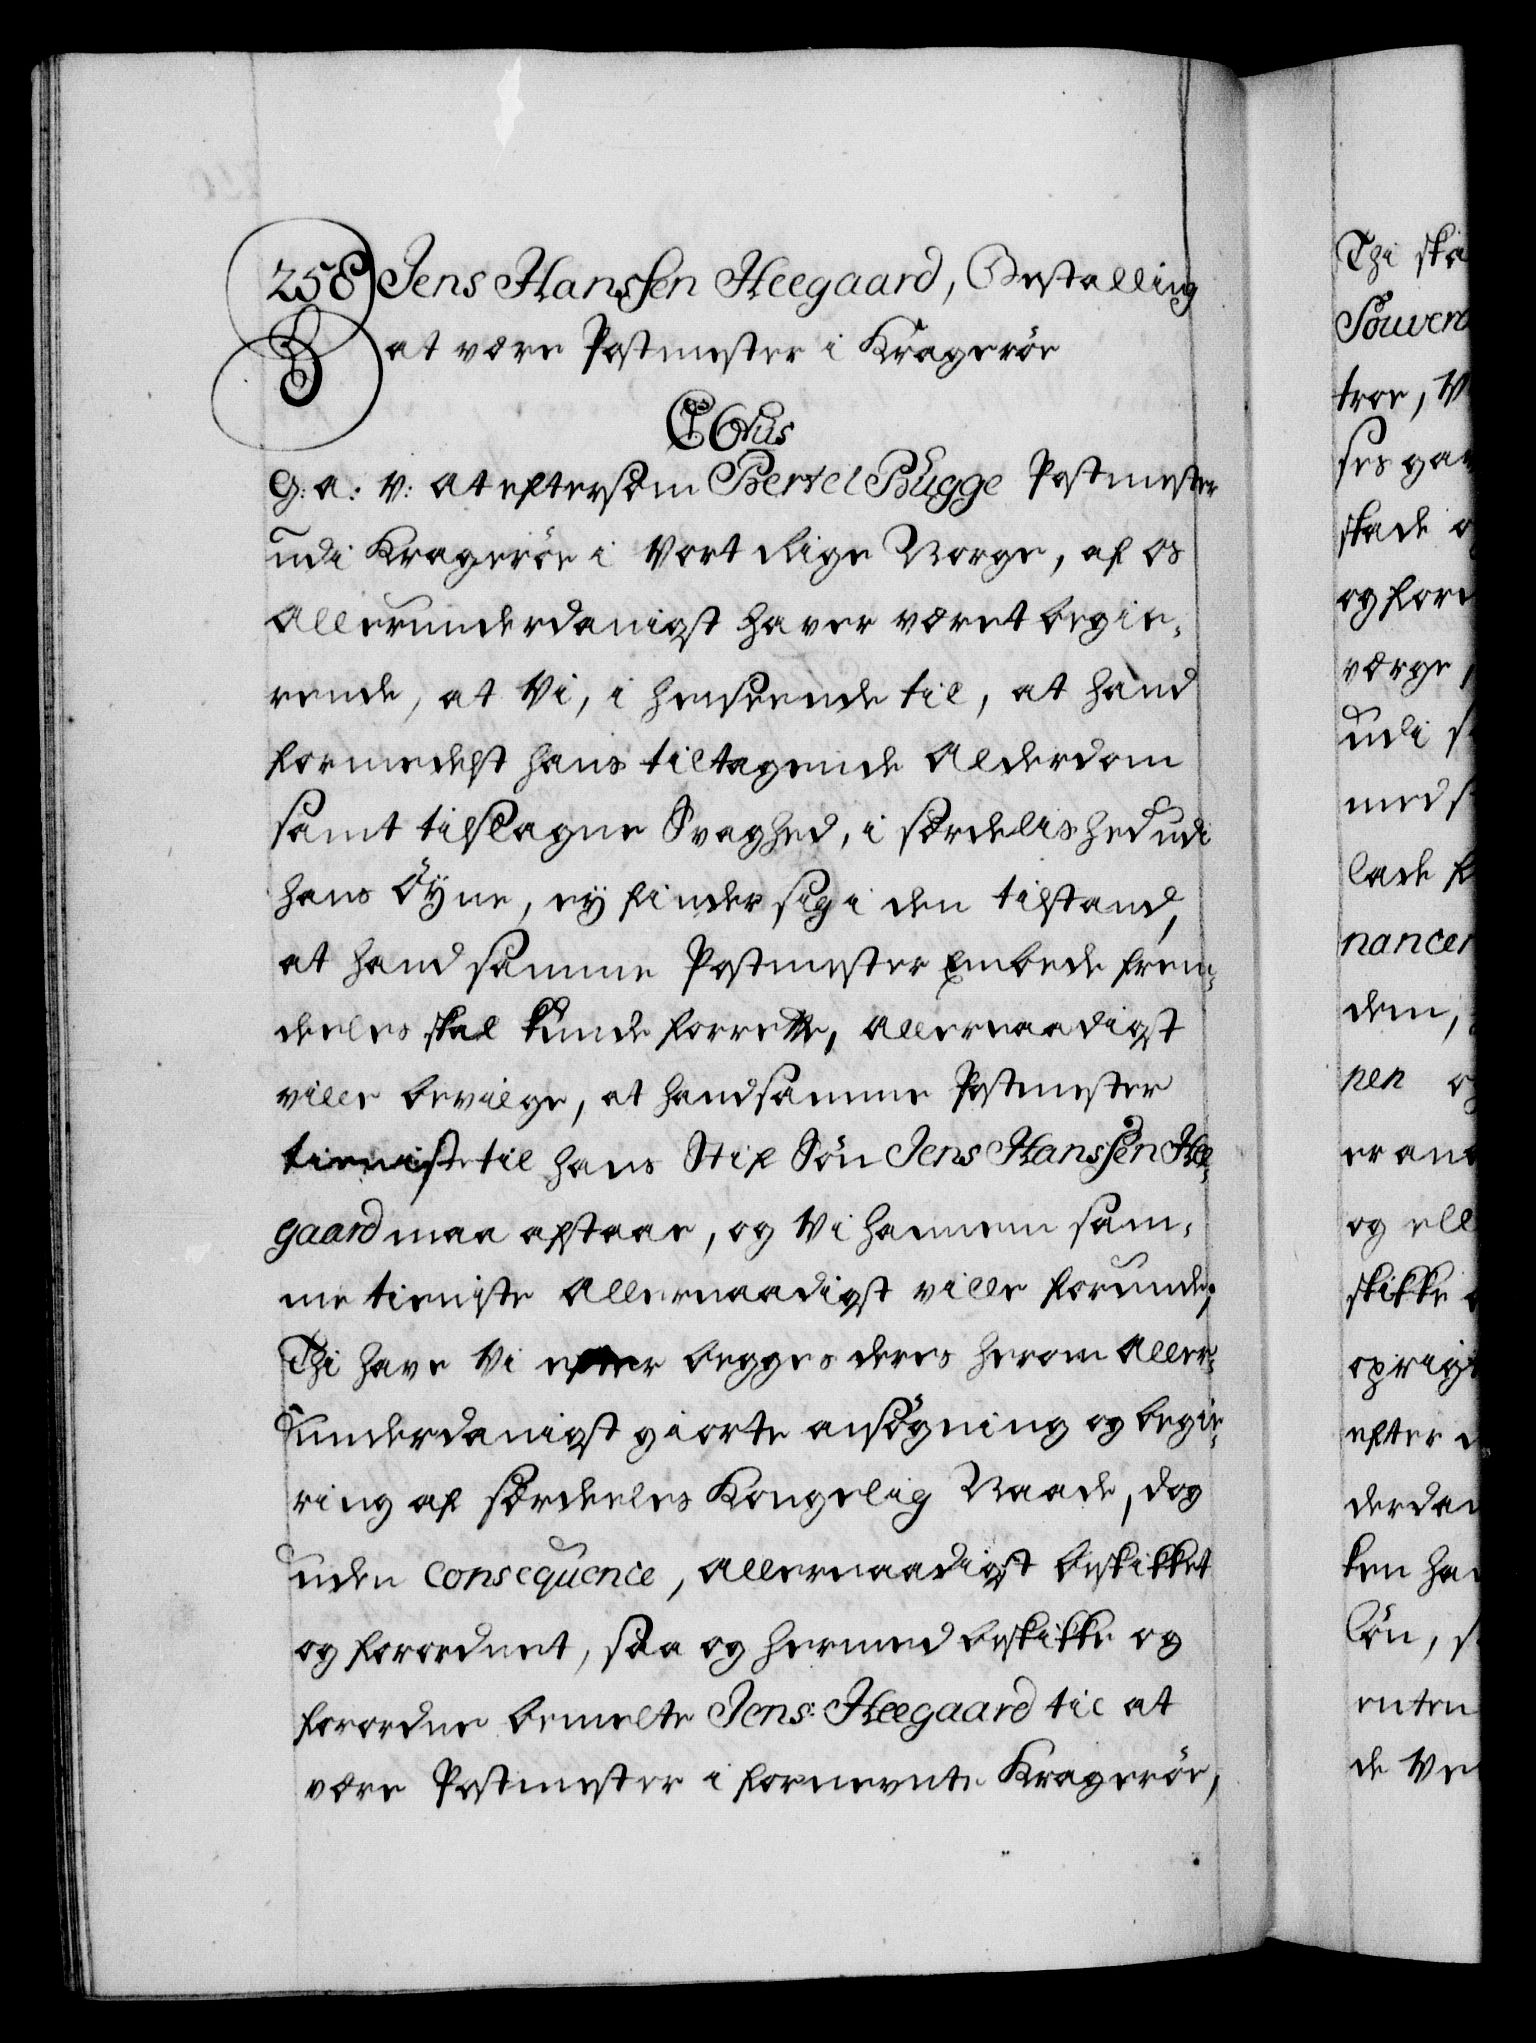 258 Jens Hanssen Heegaard, Bestalling
B at være Postmester i Kragerøe
C 6tus
G: a: v: at eftersom Bertel Bugge Postmester
udi Kragerøe i Vort Rige Norge, af os
allerunderdanigst haver været begie-
rende, at Vi, i henseende til, at hand
formedelst hans tiltagende Alderdom
samt tilslagne Svaghed, i særdelished udi
hans Öyne, ey finder sig i den tilstand,
at hand samme Postmester Embede frem-
deeles skal kunde forrette, allernaadigst
ville bevilge, at hand samme Postmester
tieniste til hans Stif Søn Jens Hanssen Hee-
gaard maa afstaae, og Vi hannem sam-
me tieniste allernaadigst ville forunde;
Thi have Vi efter begges deres herom aller-
underdanigst giorte ansøgning og begie-
ring af særdeeles Kongelig Naade, dog
uden consequence, allernaadigst beskikket
og forordnet, saa og hermed beskikke og
forordne bemelte Jens: Heegaard til at
være Postmester i fornevnte Kragerøe,
Thi ska
Souvera
troe, 
ses gav
skade o
og ford
værge,
udi s
med s
lade f
nancer
dem,
nen og
er an
og ell
skikke
oprigt
efter
derdan
ken ha
løn, s
enten
de Ve